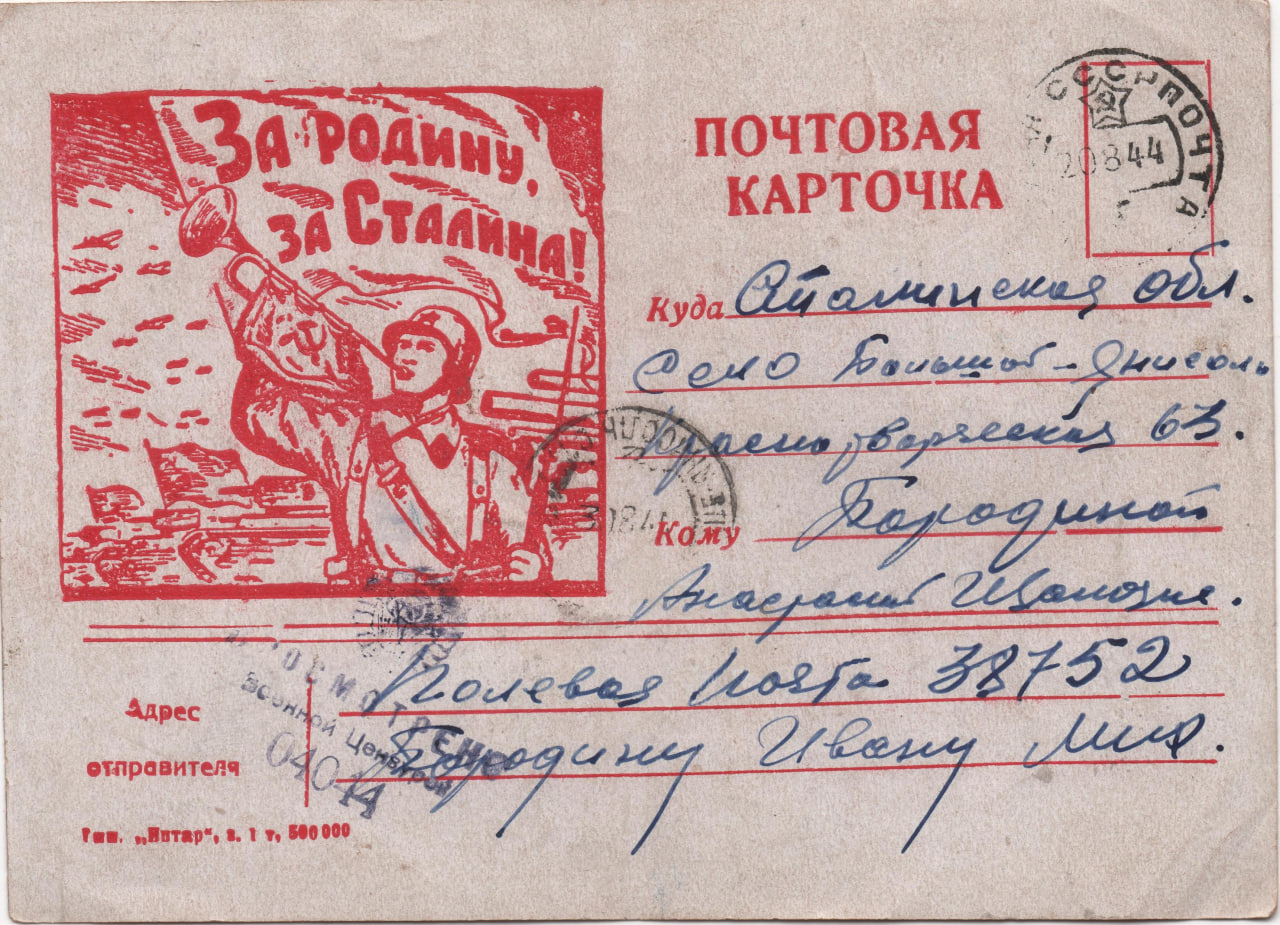 За Родину,
за Сталина!
ПОЧТОВАЯ
КАРТОЧКА
СССР ПОЧТА
20 8 44
Куда Сталинская обл.
Село Большой-Янисоль
Красноармейская 63.
Кому Бородиной
Анастасии Ивановне.
08 44
Адрес
отправителя
Полевая почта 38752
Бородину Ивану Мих.
ПРОСМОТРЕНО
Военной Цензурой
04044
Тип. „Янтар“, з. 1 т, 500 000